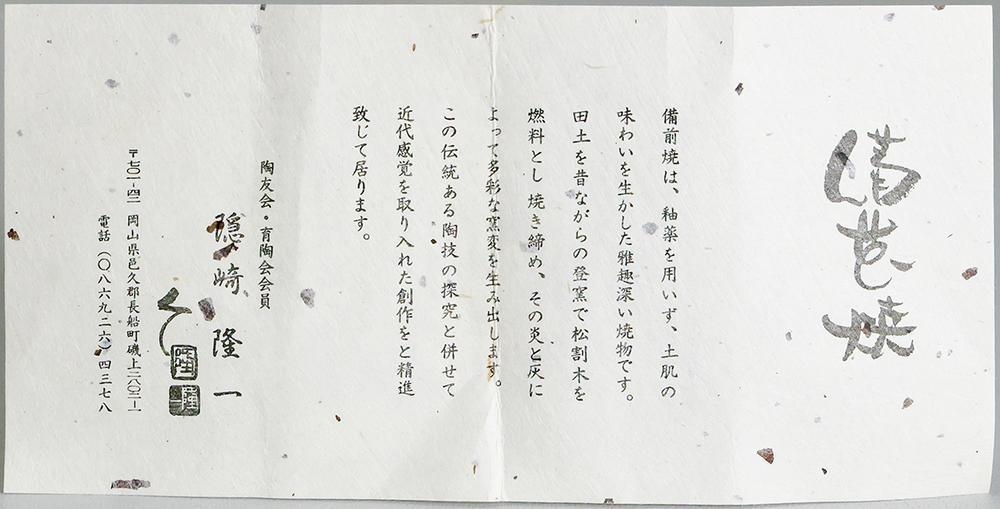 備前焼
備前焼は、釉薬を用いず、土肌の
味わいを生かした雅趣深い焼物です。
田土を昔ながらの登窯で松割木を
燃料とし 焼き締め、その炎と灰に
よって多彩な窯変を生み出します。
この伝統ある陶技の探究と併せて
近代感覚を取り入れた創作をと精進
致じて居ります。
陶友会・育陶会会員
隠崎 隆一
〒七〇一-四二 岡山県邑久郡長船町磯上二八〇二-一
電話(〇八六九二六)四三七八